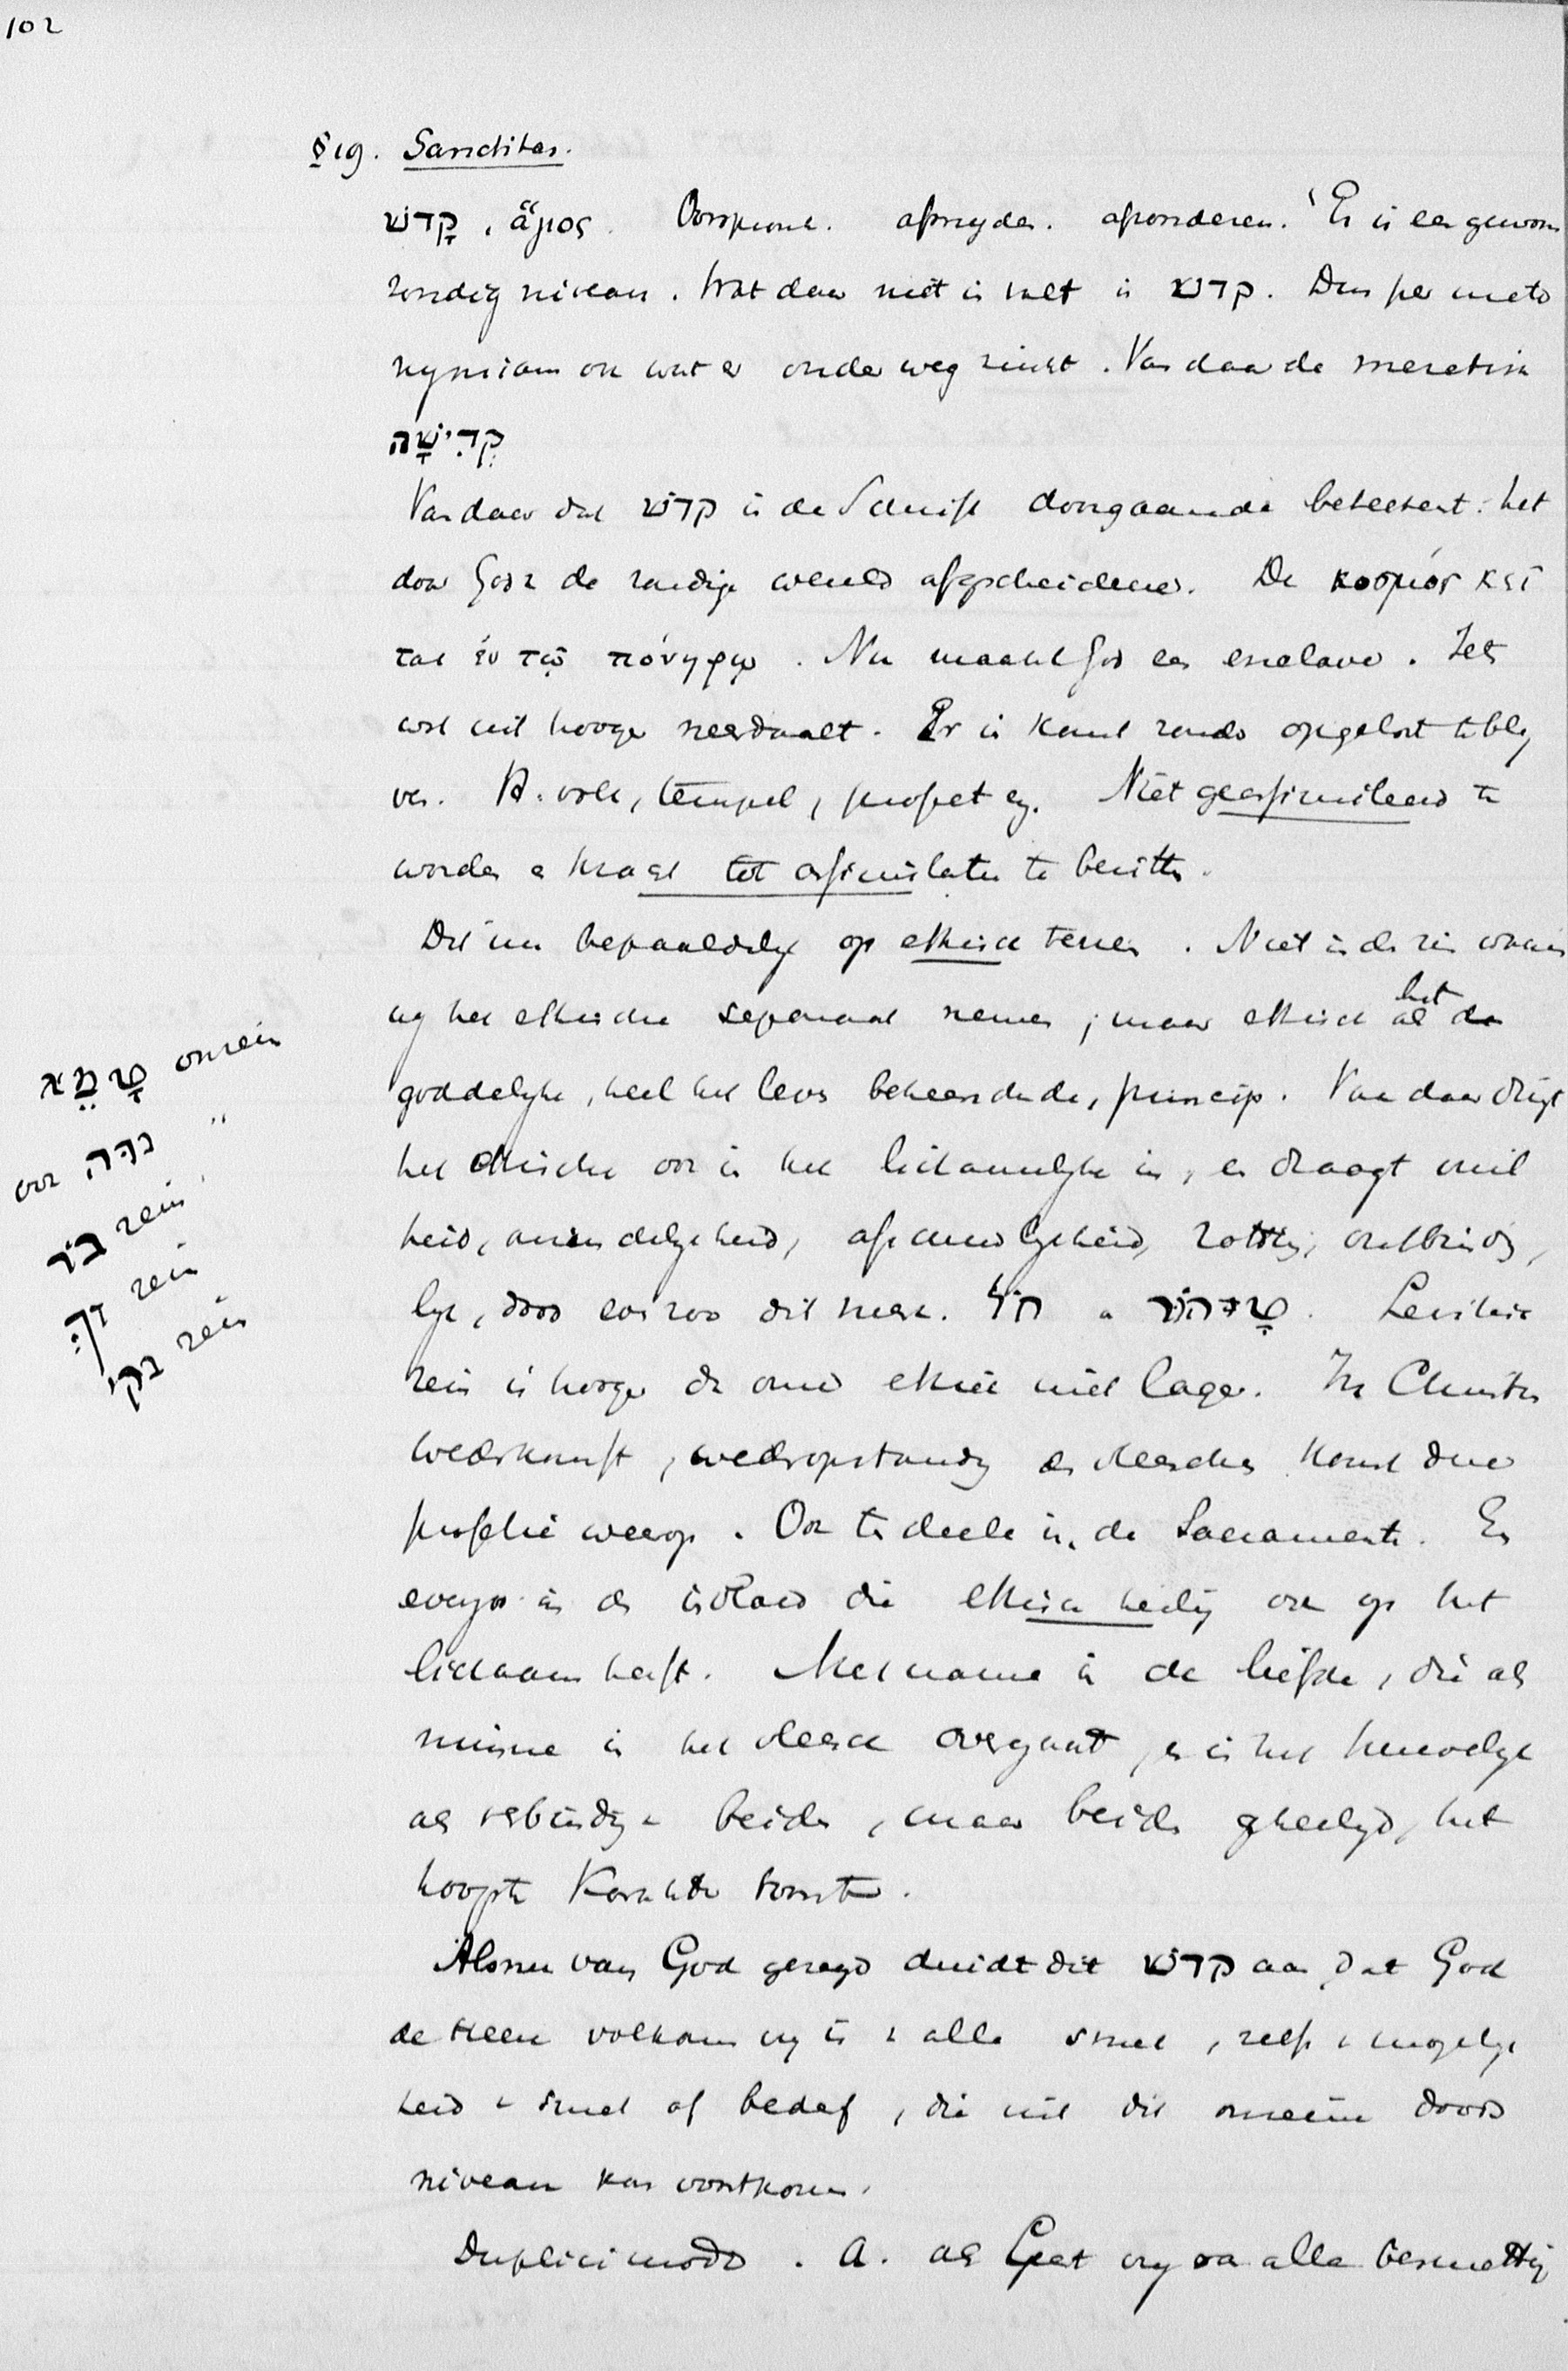 102
§ 19. Sanctitas.
קָדשׁ, ἅγιος. Oorspronk. afsnyden. afzonderen. Er is een gewoon
zondig niveau. Wat daar niet in valt is קדשׁ. Dus per meto
nymiam ook wat er onder weg zinkt. Van daar de meretrix
קְדִישָׁה
Van daar dat קדשׁ in de Schrift doorgaande beteekent: het
door God uit de zondige wereld afgescheidene. De κοσμός κεῖ
ται ἐν τῷ πόνηρῳ. Nu maakt God een enclave. Iets
wat uit hooger neerdaalt. Er in komt zonder opgelost te bly
ven. B.v. volk, tempel, profet en. Niet geassimileerd te
worden en kracht tot assimilatie te bezitten.
Dit nu bepaaldelyk op ethisch terrein. Niet in den zin waarin
wy het ethische separaat nemen; maar ethisch als het
goddelyke, heel het leven beheerschende, princip. Van daar dringt
het ethische ook in het lichamelyke in, en draagt vuil
heid, onreindelykheid, afschuwlykheid, rotting, ontbinding,
lyk, dood enz. zoo dit merk. חֹל en טָהוֹר. Levitisch
rein is hooger dan onrein ethisch niet lager. In Christus
wederkomst, wederopstanding des vleesches komt deze
profetie weerop. Ook ten deele in de Sacramenten. En
evenzoo in den invloed die ethisch heilig ook op het
lichaam heeft. Met name in de liefde, die als
minne in het vleesch overgaat, en in het huwelyk
als verbinding van beide, maar beide geheiligd, het
hoogste karakter toont.
Als nu van God gezegd duidt dit קדשׁ aan dat God
de Heere volkomen vry is van alle smet, zelfs van mogelyk
heid van smet of bederf, die uit dit onreine doode
niveau kan voortkomen.
Duplici modo. A. als Geest vry van alle besmetting
טָמֵא onrein
ook נִדָּה ״
בֹּר rein
זַךְ rein
נקי rein